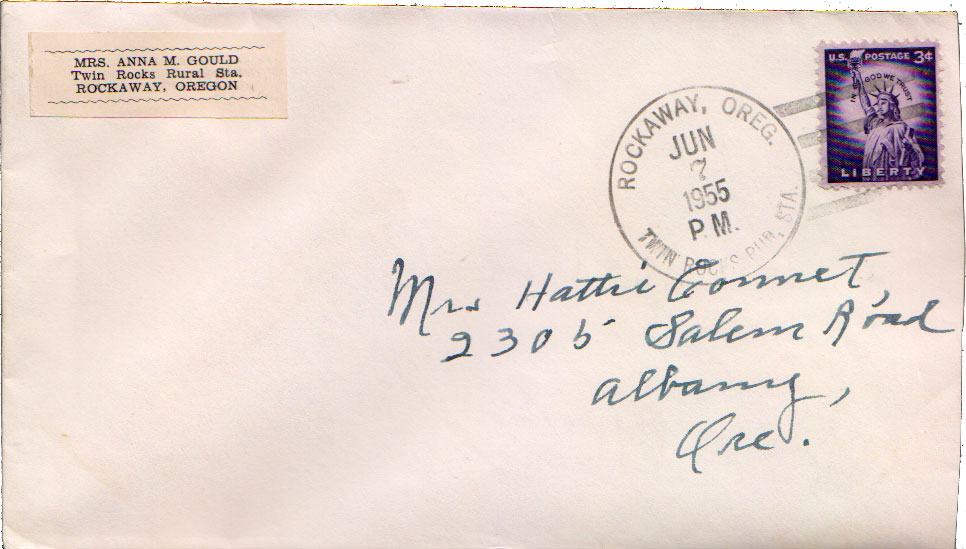 MRS. ANNA M. GOULD
Twin Rocks Rural Sta.
ROCKAWAY, OREGON
ROCKAWAY, OREG.
JUN
7
1955
P.M.
TWIN ROCKS RUR. STA.
U.S. POSTAGE 3¢
IN GOD WE TRUST
LIBERTY
Mrs Hattie Cormet,
2305 Salem Road
Albany,
Ore.